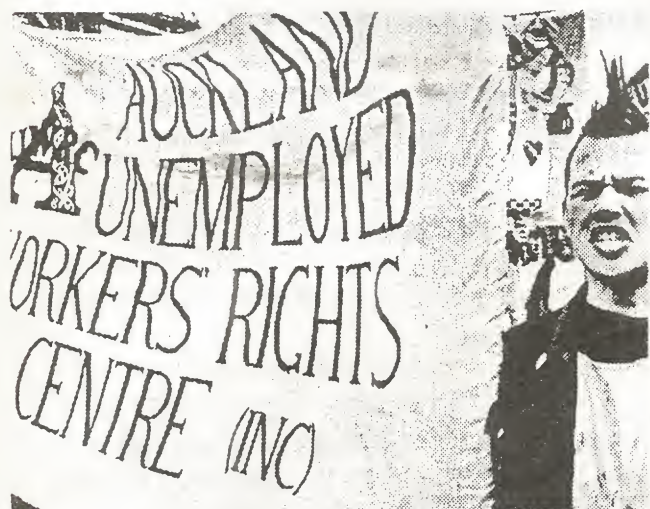 AUCKLAND
UNEMPLOYED
ORKERS' RIGHTS
CENTRE (INC)